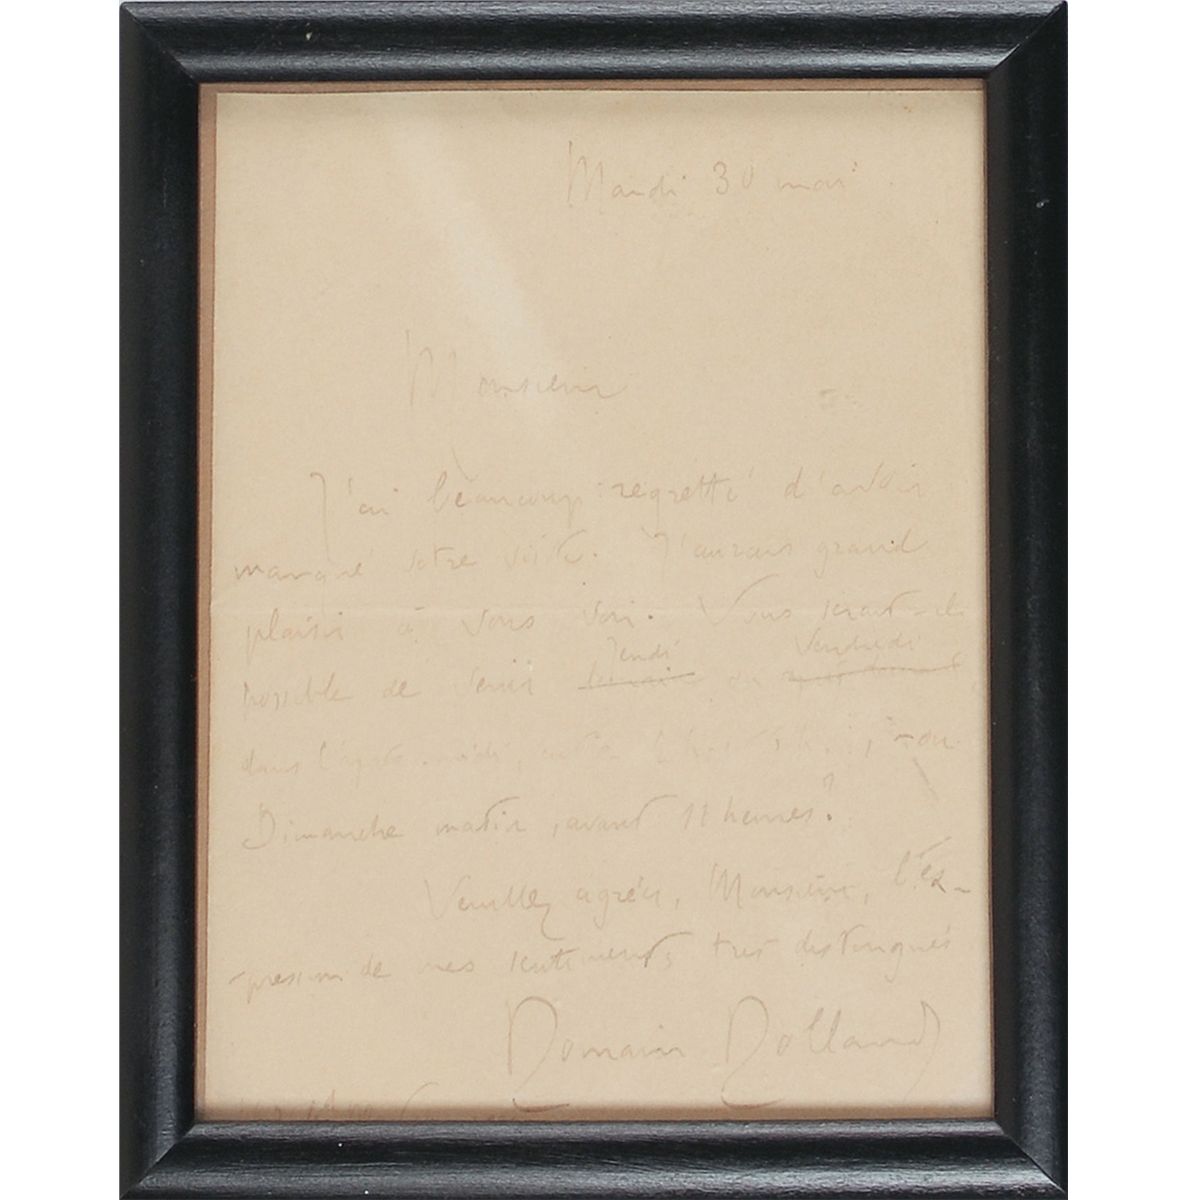 Mardi 30 mai
Monsieur
J'ai beaucoup regretté d'avoir
manqué votre visite. J'aurais grand
plaisir à vous voir. Vous serait-il
Jeudi Vendredi
possible de venir ou
dans l'après-midi, ou
Dimanche matin, avant 11 heures?
Veuillez agréer, Monsieur, l'ex-
-pression de mes sentiments très distingués
Romain Rolland